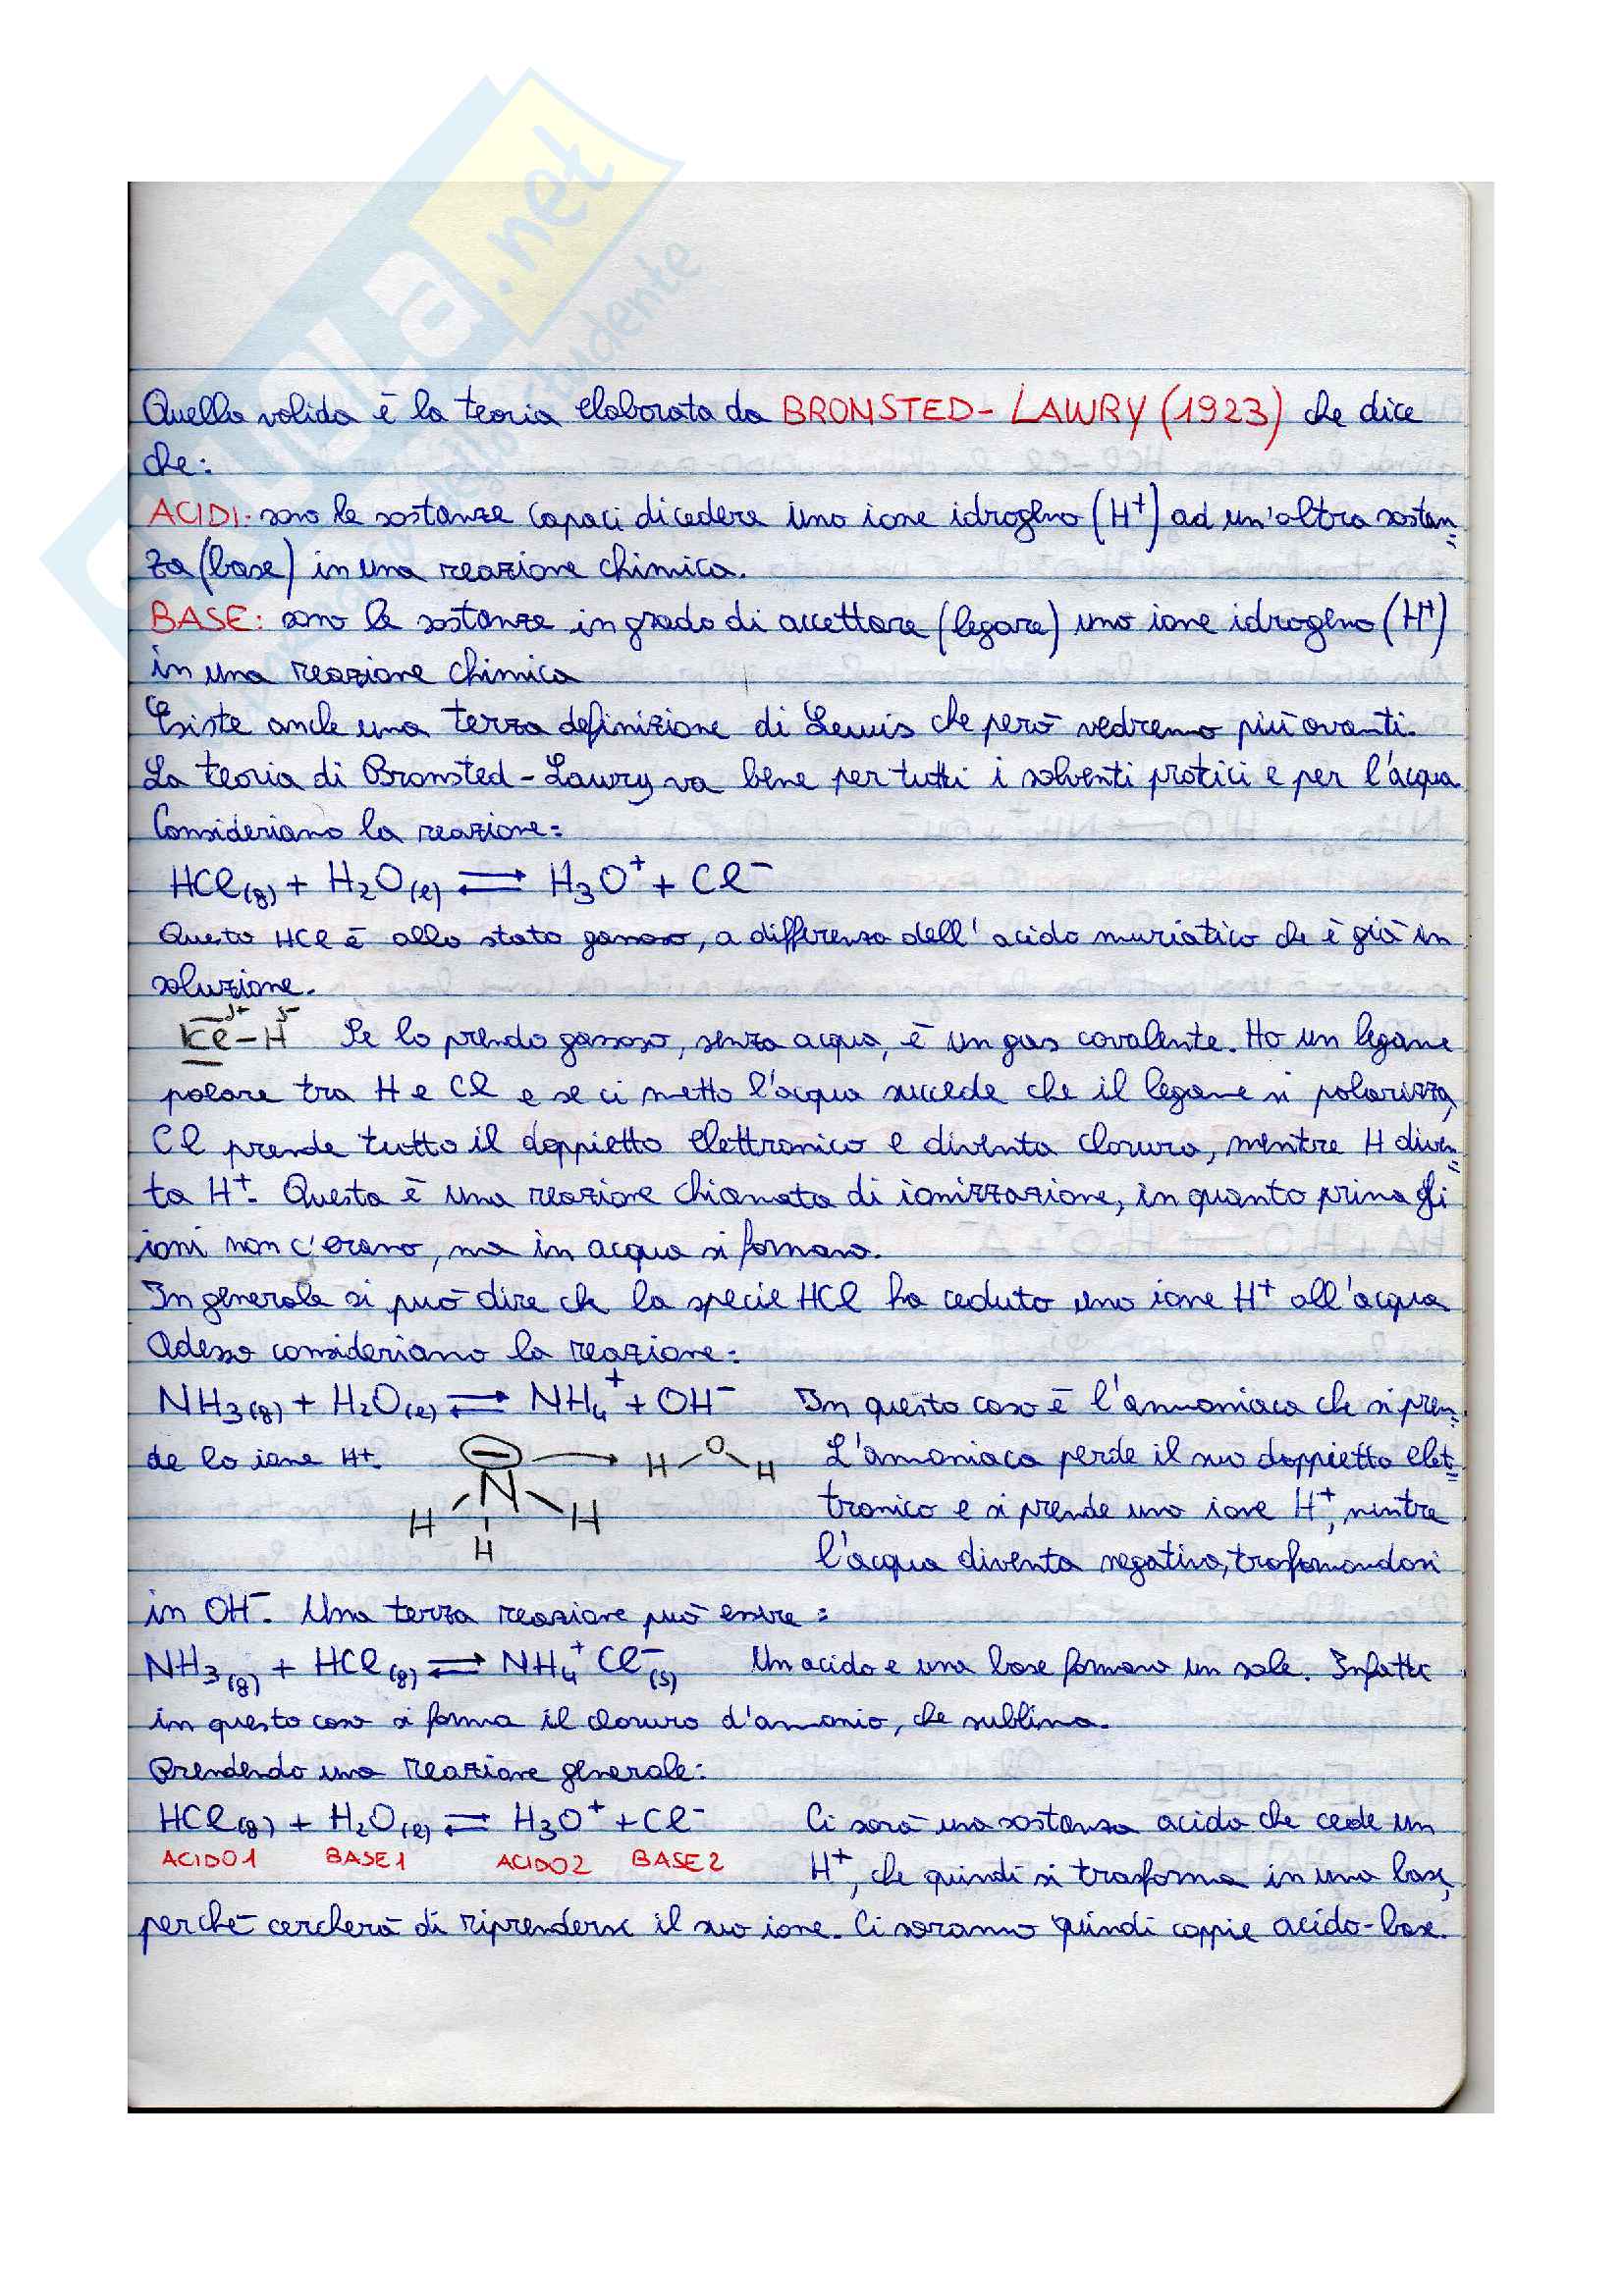 Quella valida è la teoria elaborata da BRONSTED-LAWRY (1923) che dice
che:
ACIDI: sono le sostanze capaci di cedere uno ione idrogeno (H⁺) ad un'altra sostan=
za (base) in una reazione chimica.
BASE: sono le sostanze in grado di accettare (legare) uno ione idrogeno (H⁺)
in una reazione chimica
Esiste anche una terza definizione di Lewis che però vedremo più avanti.
La teoria di Bronsted-Lawry va bene per tutti i solventi protici e per l'acqua
Consideriamo la reazione:
HCl(g) + H₂O(l) ⇌ H₃O⁺ + Cl⁻
Questo HCl è allo stato gassoso, a differenza dell'acido muriatico che è già in
soluzione.
δ+ δ-
|Cl-H Se lo prendo gassoso, senza acqua, è un gas covalente. Ho un legame
polare tra H e Cl e se ci metto l'acqua succede che il legame si polarizza,
Cl prende tutto il doppietto elettronico e diventa cloruro, mentre H diven=
ta H⁺. Questa è una reazione chiamata di ionizzazione, in quanto prima gli
ioni non c'erano, ma in acqua si formano.
In generale si può dire che la specie HCl ha ceduto uno ione H⁺ all'acqua
Adesso consideriamo la reazione:
NH₃(g) + H₂O(l) ⇌ NH₄⁺ + OH⁻ In questo caso è l'ammoniaca che si pren=
de lo ione H⁺. H O H L'amoniaca perde il suo doppietto elet=
N
H H tronico e si prende uno ione H⁺, mentre
H
l'acqua diventa negativa, trasformandosi
in OH⁻. Una terza reazione può essere:
NH₃(g) + HCl(g) ⇌ NH₄⁺ Cl⁻(s) Un acido e una base formano un sale. Infatti
in questo caso si forma il cloruro d'amonio, che sublima.
Prendendo una reazione generale:
HCl(g) + H₂O(l) ⇌ H₃O⁺ + Cl⁻ Ci sarà una sostanza acida che cede un
ACIDO1 BASE1 ACIDO2 BASE2 H⁺, che quindi si trasforma in una base,
perché cercherà di riprendersi il suo ione. Ci saranno quindi coppie acido-base.
.net